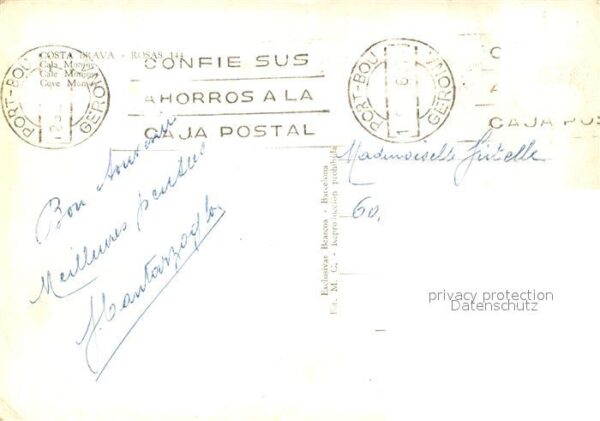 COSTA BRAVA - ROSAS 144
Cala
Cale
Cove
PORT-BOU
GERONA
CONFIE SUS
AHORROS A LA
CAJA POSTAL
PORT-BOU
GERONA
C
A
CAJA POS
Bon souvenir
Meilleures pensées
Mademoiselle
60,
Exclusivas Bearcoa - Barcelona
Ed. M. C. - Reproducción prohibida
privacy protection
Datenschutz